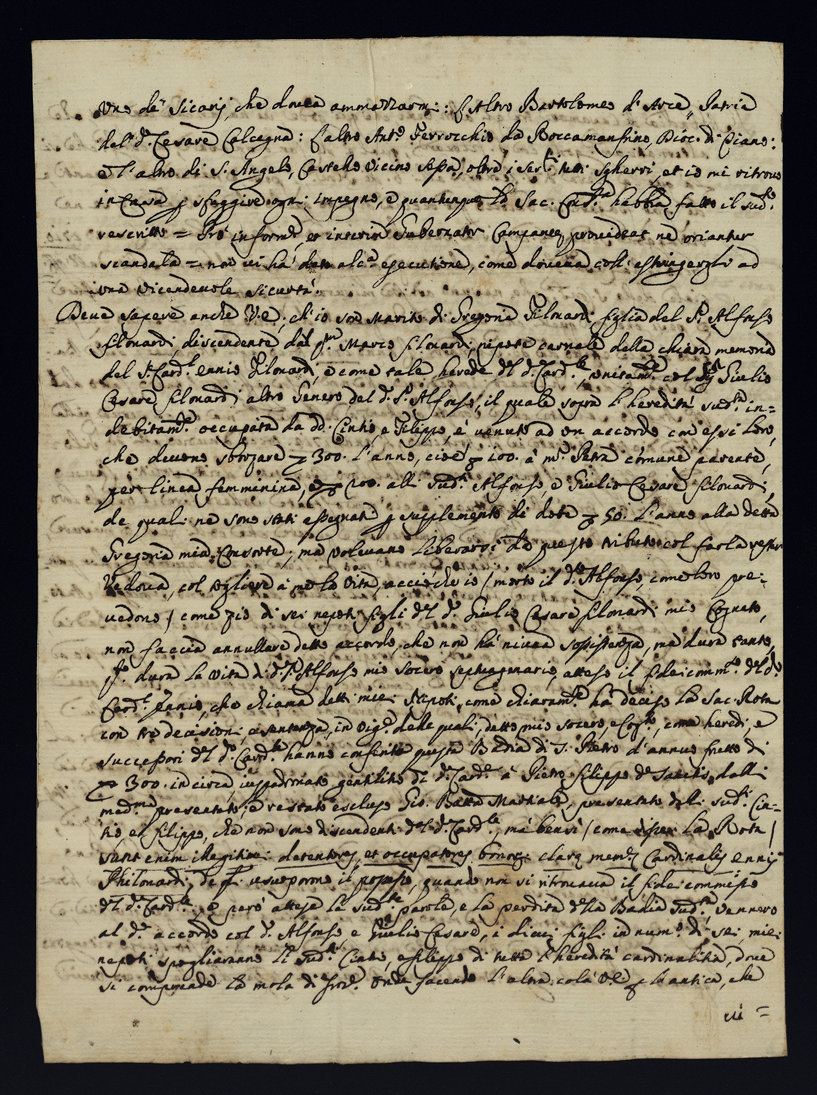 uno de' Sicarij, che dovea ammazzarmi: l'altro Bartolomeo d'Arce, Patria
del d.º Cesare Calcagna: l'altro Ant.º Ferrocchio da Roccamonfina, Dioc. di
e l'altro di S. Angelo, Castello vicino Sessa, oltre i tutti sgherri, et io mi ritrovo
in Casa p sfuggire ogni impegno, e quantunque la Sac. habbia fatto il sud.º
rescritto = Pro informe, et interim Gubernator Campaneæ provideat ne oriantur
scandala = non vi ha dato alc.ª esecutione, come doveva coll' astringergli ad
una vicendevole sicurtà.
Deve sapere anche V.E., ch'io son Marito di Gregoria Filonardi figlia del S.r Alfonso
Filonardi discendente dal q.m Marco Filonardi nipote carnale della chiara memoria
del S.r Card.l Ennio Filonardi, e come tale herede del d.º Card.le, unitam.te col S.r Giulio
Cesare Filonardi altro Genero del d.º S.r Alfonso, il quale sopra l'heredità sud.ª in-
debitam.te occupata da dd. Cintio, e Filippo, è venuto ad un accordo con essi loro,
che devono sborzare 300. l'anno, cioè 100. à m.º Petra comune parente,
per linea femminina, e 200. alli sud.i Alfonso, e Giulio Cesare Filonardi,
de quali ne sono stati assegnati p supplemento di dote 50. l'anno alla detta
Gregoria mia Consorte; ma volevano liberarsi da questo tributo col farla restar
Vedova, col togliere à me la vita, acciò che io (morto il d.º Alfonso, come loro pre-
vedono) come zio di sei nepoti figli del d.º Giulio Cesare Filonardi mio Cognato,
non faccia annullare detto accordo, che non hà niuna sossistenza, ma dura tanto,
q.to dura la vita di d.º S.r Alfonso mio socero settuagenario, atteso il fideicomm.º del d.º
Card.l Ennio, che chiama detti miei Nepoti, come chiaram.te hà deciso la Sac. Rota
con tre decisioni, e sentenza, in vig.e delle quali, detto mio socero, e Cog.to, come heredi, e
successori del d.º Card.le hanno conferito questa Badia di S. Pietro d'annuo frutto di
300. in circa, iuspadronato gentilitio del d.º Card.le à Pietro Filippo de Sanctis, dalli
med.mi presentato, e restato escluso Gio. Batta presentato dalli sud.i Cin-
tio, et Filippo, che non sono discendenti del d.º Card.le, mà bensì (come disse la Rota)
sunt enim illegitimi detentores, et occupatores bonorum claræ mem. Cardinalis Ennij
Philonardi, de q.li usurporno il possesso, quando non si ritrovava il fidecommisso
del d.º Card.le; e però attesa la sud.ª parola, e la perdita della Badia sud.ª vennero
al d.º accordo col d.º Alfonso, e Giulio Cesare, i di cui figli in num.º di sei, miei
nepoti spogliaranno li sud.i Cintio, e Filippo di tutta l'heredità cardinalitia, dove
si comprende la mola di Onde facendo l'altra colà V.E. p l'antica, che
vi =